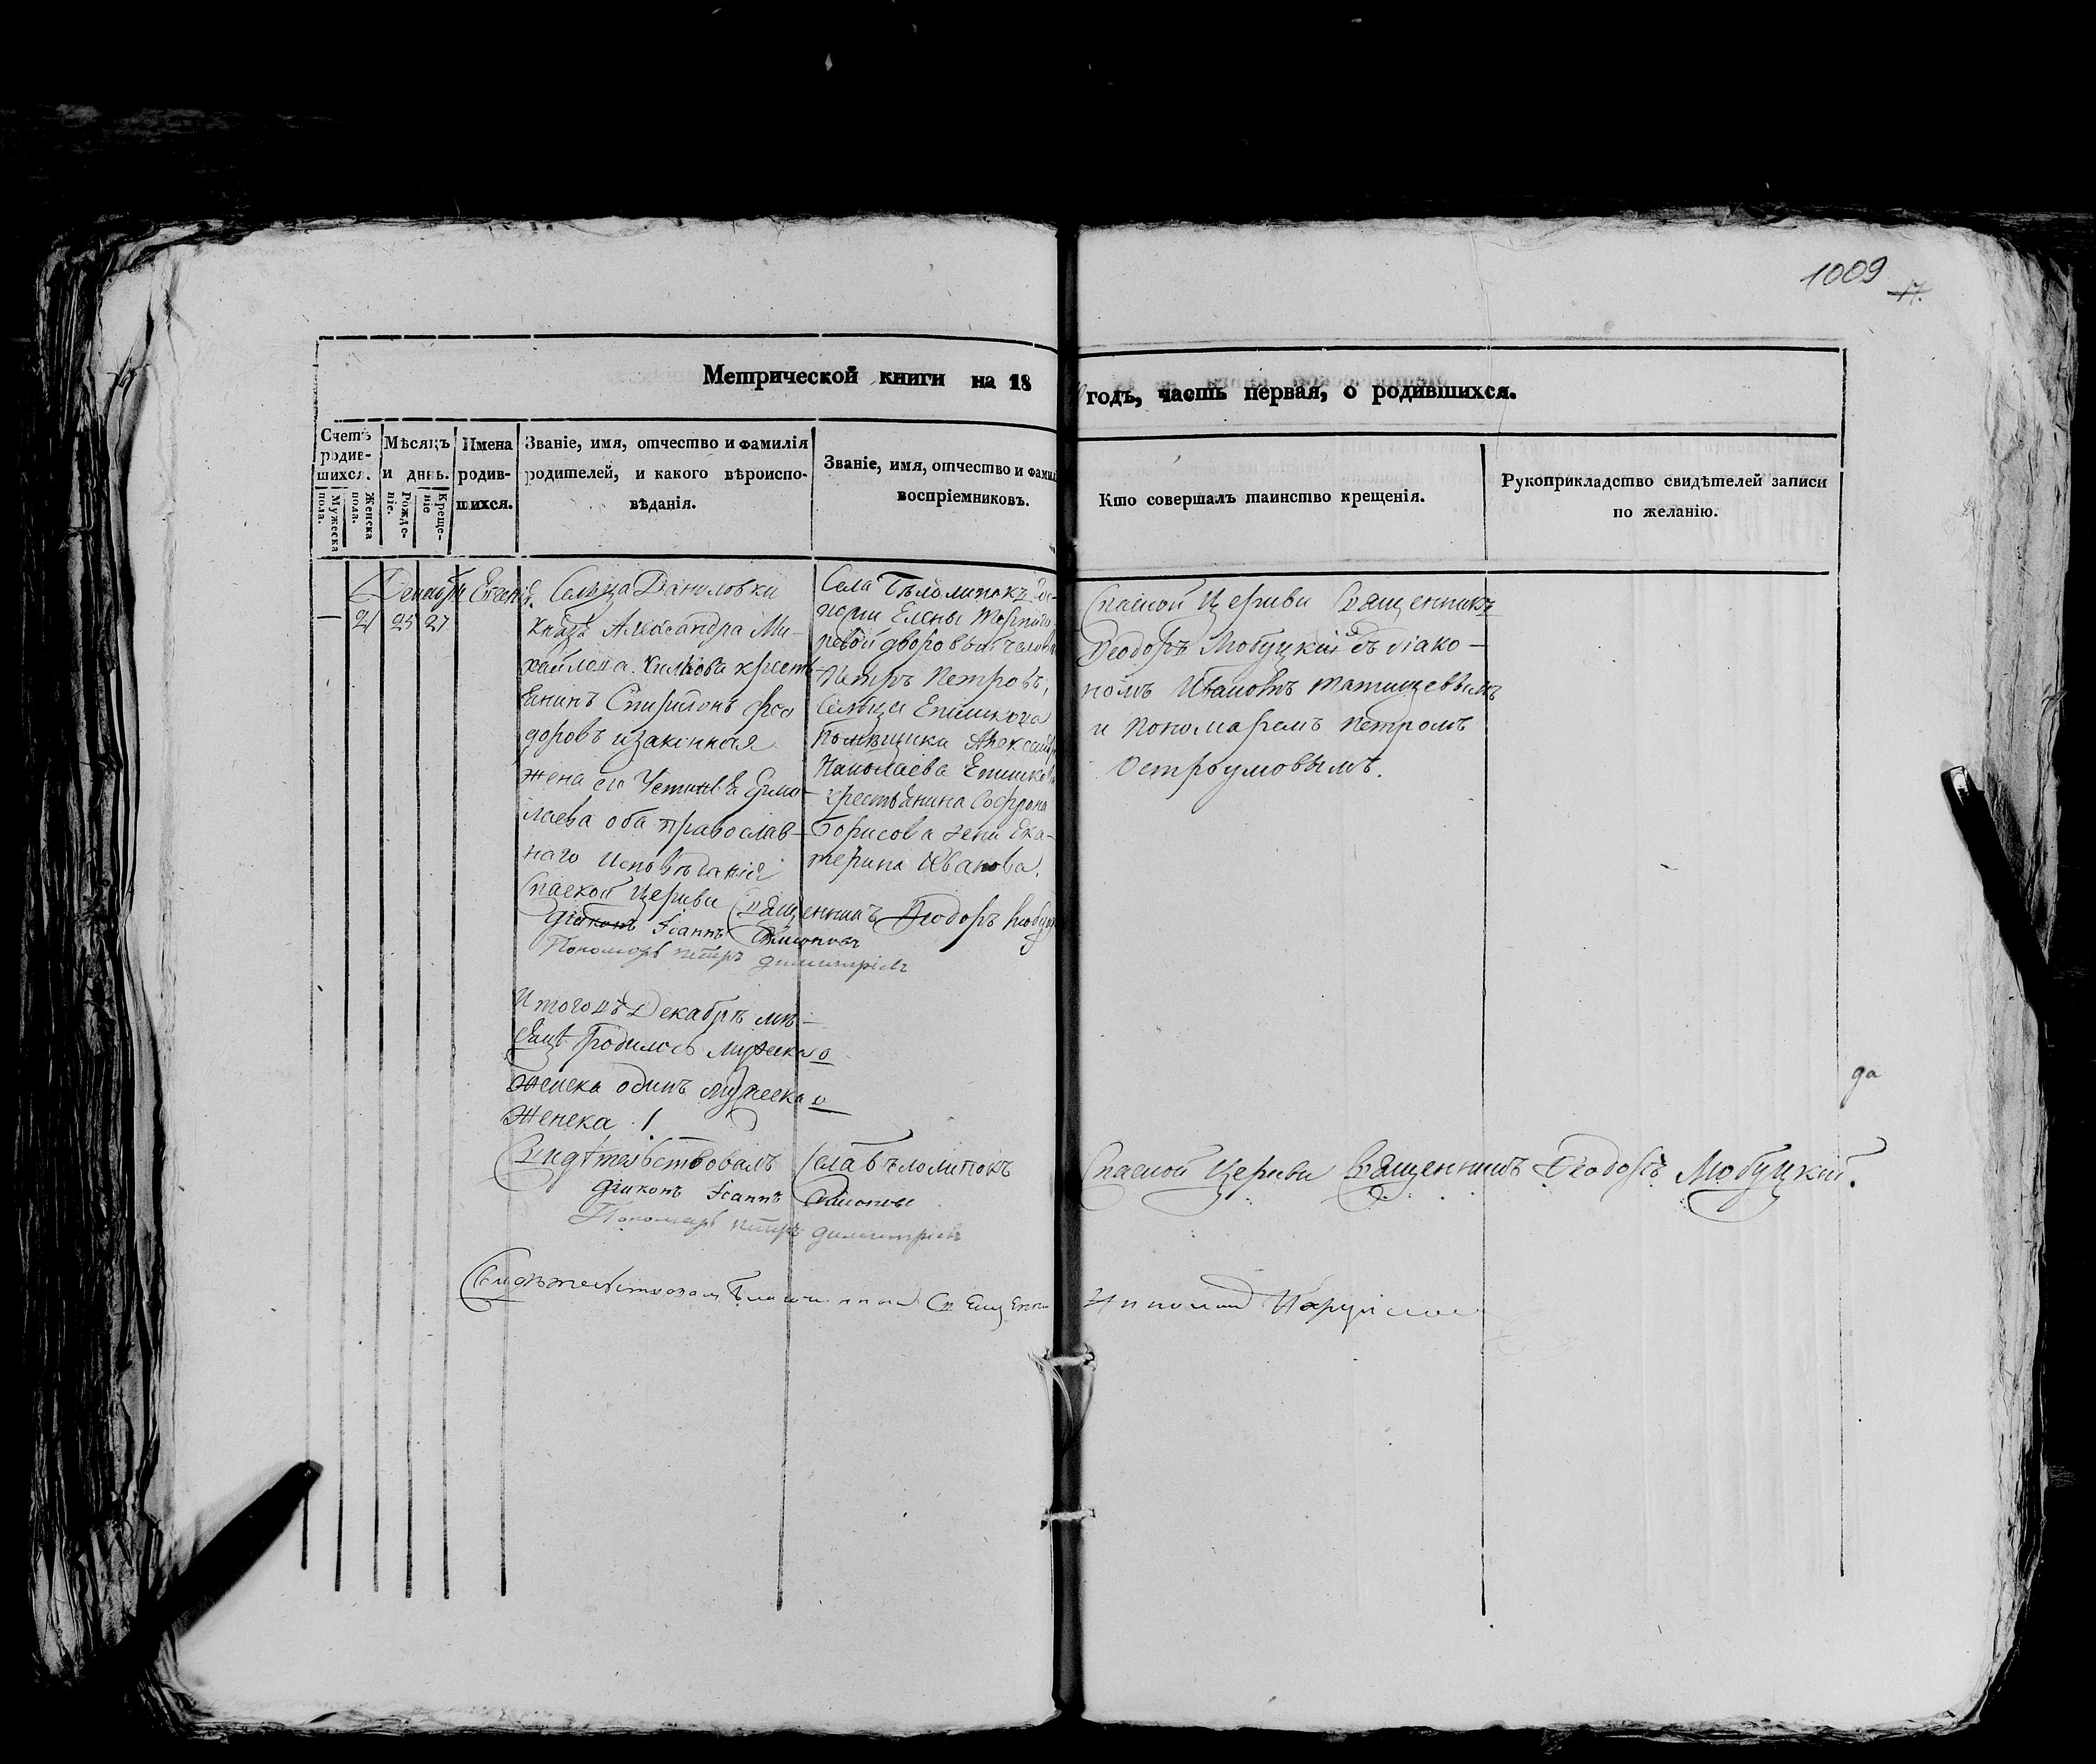 1009
17.
Метрической книги на 18 годъ, часть первая, о родившихся.
Счетъ родившихся.
Мужеска пола.
Женска пола.
Мѣсяцъ и день.
Рожденіе.
Крещеніе
Имена родившихся.
Званіе, имя, отчество и фамилія
родителей, и какого вѣроиспо-
вѣданія.
Званіе, имя, отчество и фами
воспріемниковъ.
Кто совершалъ таинство крещенія.
Рукоприкладство свидѣтелей записи
по желанію.
Декабря
— 21 25 27
Сельца Даниловки
Князя Александра Ми-
хайлова крестья
янинъ Спиридонъ Фео
доровъ и законная
жена его Устинья Ермо-
лаева оба православ-
наго исповѣданія
Села Бѣломитокъ Гос-
пожи Елены
дворовый человѣ
Петръ Петровъ,
Сельца Епишкова
Помѣщика Александр
Николаева Епишкова
крестьянина Софрона
Борисова жена Ека-
терина Иванова.
Спаской Церкви Священникъ
Ѳеодоръ Любуцкій съ діако-
номъ Иваномъ Татищевымъ
и Пономаремъ Петромъ
Остроумовымъ.
Спаской Церкви Священникъ Ѳеодоръ Любуц
Діаконъ Іоаннъ
Пономарь Петръ Димитріевъ
Итого въ Декабрѣ мѣ-
сяцѣ родилось мужеска 0
Женска одинъ мужеска 0
Женска 1
Свидѣтельствовалъ Села Бѣломитокъ Спаской Церкви Священникъ Ѳеодоръ Любуцкій.
Діаконъ Іоаннъ
Пономарь Петръ Димитріевъ
да
Свидѣтельствовалъ Благочинной Священни